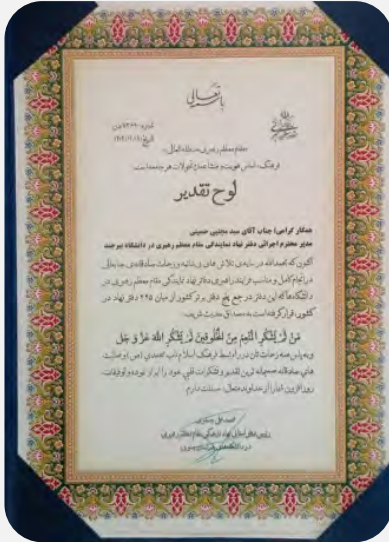 باسمه تعالی
تاریخ:
مقام معظم رهبری (مدظله العالی):
فرهنگ، اساس هویت و منشأ همه تحولات هر جامعه است.
لوح تقدیر
همکار گرامی؛ جناب آقای سید مجتبی حسینی
مدیر محترم اجرائی دفتر نهاد نمایندگی مقام معظم رهبری در دانشگاه بیرجند
اکنون که بحمدالله در سایه‌ی تلاش های بی شائبه و زحمات صادقانه‌ی جنابعالی
در انجام کامل و مناسب فرایند راهبری دفاتر نهاد نمایندگی مقام معظم رهبری در
دانشگاه‌ها که این دفتر در جمع پنج دفتر برتر کشور از میان ۲۴۵ دفتر نهاد در
کشور، قرار گرفته است به مصداق حدیث شریف:
مَن لَم یَشکُرِ المُنعِمَ مِنَ المَخلوقینَ لَم یَشکُرِ اللهَ عَزَّ وَ جَل
و به پاس همه زحمات تان در راه بسط فرهنگ اسلام ناب محمدی (ص) و فعالیت
های صادقانه صمیمانه ترین تقدیر و تشکرات قلبی خود را ابراز نموده و توفیقات
روزافزون شما را از خداوند متعال، مسئلت دارم.